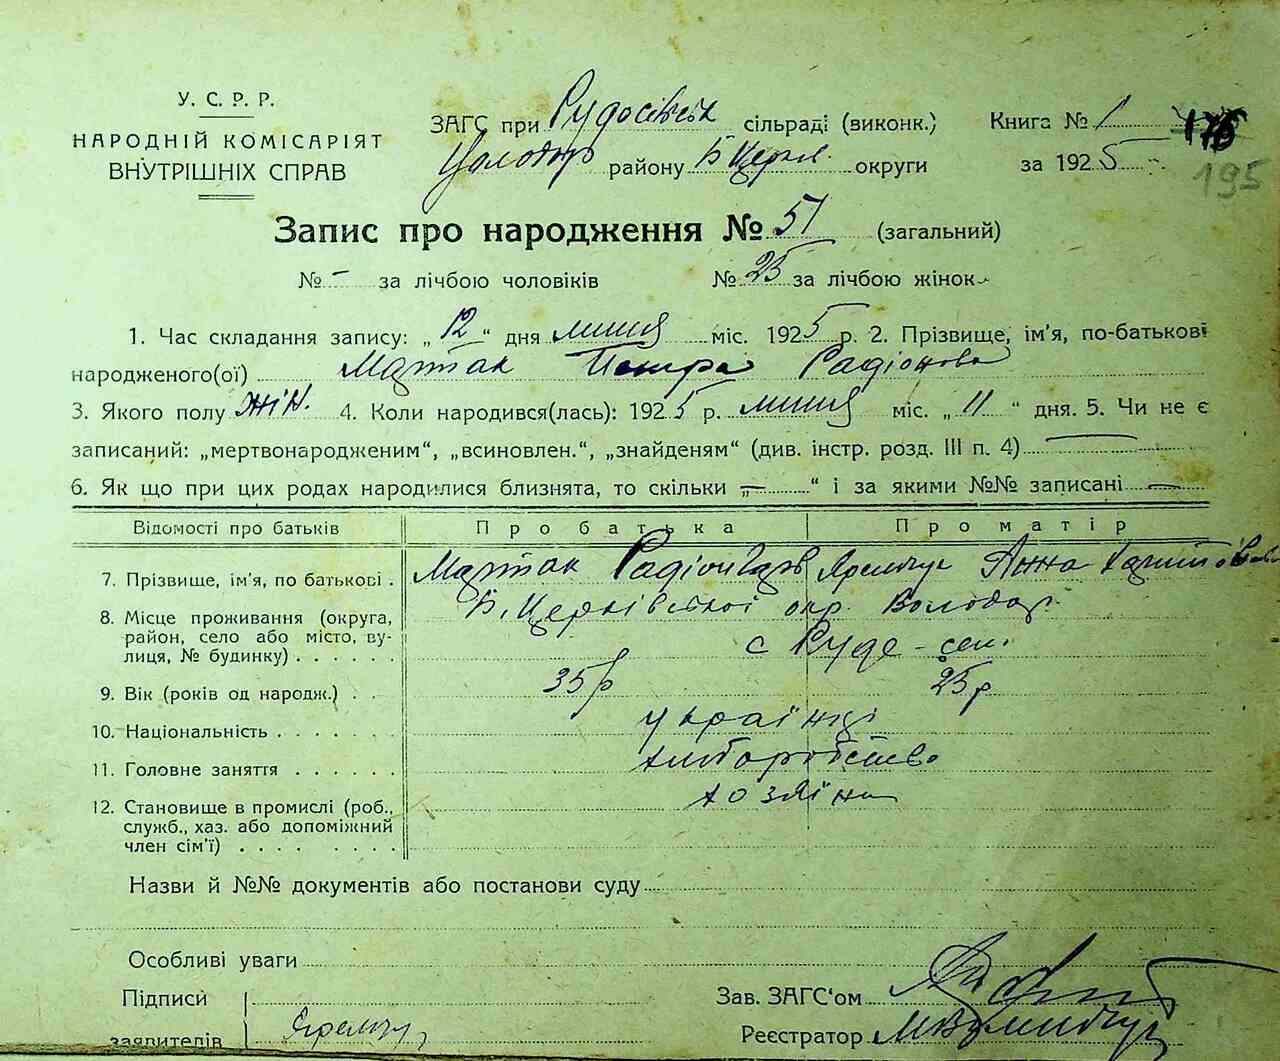 У. С. Р. Р.
НАРОДНІЙ КОМІСАРІЯТ
ВНУТРІШНІХ СПРАВ
ЗАГС при Рудосільск сільраді (виконк.) Книга № 1
району Б Церк. округи за 1925
195
Запис про народження № 51 (загальний)
№ – за лічбою чоловіків № 25 за лічбою жінок
1. Час складання запису: „12“ дня липня міс. 1925 р. 2. Прізвище, ім'я, по-батькові
народженого(ої) Мартак Радіонова
3. Якого полу жін. 4. Коли народився(лась): 1925 р. липня міс. „11“ дня. 5. Чи не є
записаний: „мертвонародженим“, „всиновлен.“, „знайденям“ (див. інстр. розд. III п. 4)
6. Як що при цих родах народилися близнята, то скільки „—“ і за якими №№ записані —
Відомості про батьків Про батька Про матір
7. Прізвище, ім'я, по батькові . Мартак Радіон Яремчук Анна
8. Місце проживання (округа, Б. Церківської окр. Володар.
район, село або місто, ву- с Руде-сел.
лиця, № будинку) . . . . . .
9. Вік (років од народж.) . . 35 р 25 р
10. Національність . . . . . . українці
11. Головне заняття . . . . . . хліборобство
12. Становище в промислі (роб., хозяїни
служб., хаз. або допоміжний
член сім'ї) . . . . . . . .
Назви й №№ документів або постанови суду
Особливі уваги
Підписи Зав. ЗАГС'ом
заявителів Яремчук Реєстратор